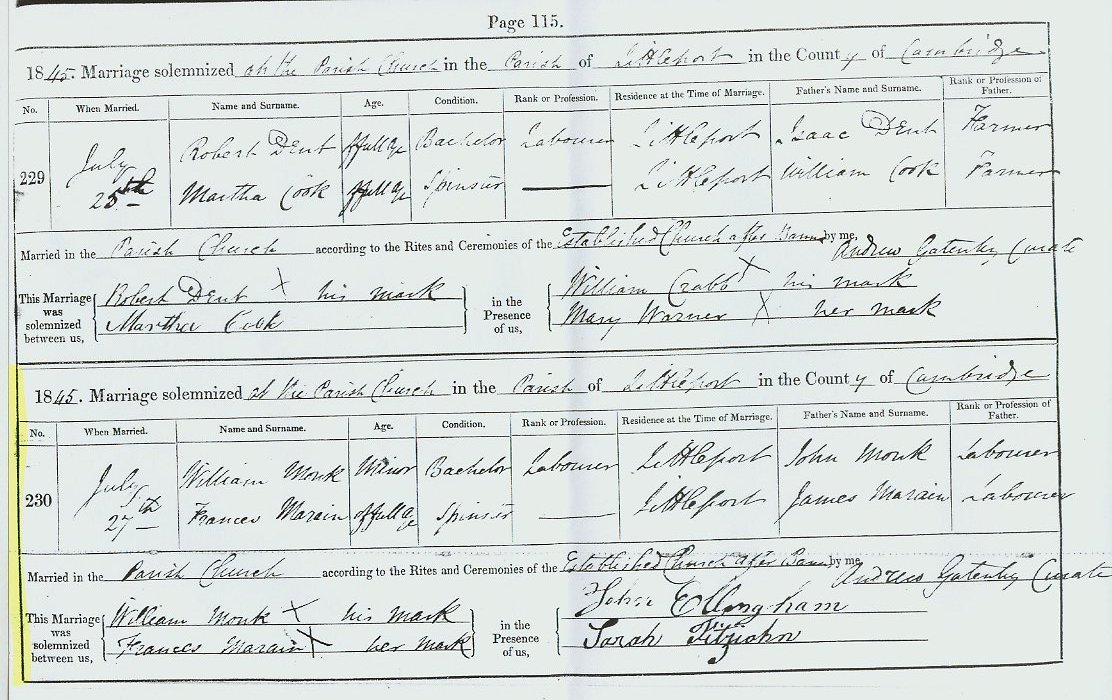 Page 115.
1845. Marriage solemnized at the Parish Church in the Parish of Littleport in the County of Cambridge
No. When Married. Name and Surname. Age. Condition. Rank or Profession. Residence at the Time of Marriage. Father's Name and Surname. Rank or Profession of Father.
229 July 25th Robert Dent of full age Bachelor Labourer Littleport Isaac Dent Farmer
Martha Cook of full age Spinster Littleport William Cook Farmer
Married in the Parish Church according to the Rites and Ceremonies of the Established Church after Banns by me, Andrew Gatenby Curate
This Marriage was solemnized between us, Robert Dent X his mark in the Presence of us, William Crabb X his mark
Martha Cook Mary Warner X her mark
1845. Marriage solemnized at the Parish Church in the Parish of Littleport in the County of Cambridge
No. When Married. Name and Surname. Age. Condition. Rank or Profession. Residence at the Time of Marriage. Father's Name and Surname. Rank or Profession of Father.
230 July 27th William Monk Minor Bachelor Labourer Littleport John Monk Labourer
Frances Marain of full age Spinster Littleport James Marain Labourer
Married in the Parish Church according to the Rites and Ceremonies of the Established Church after Banns by me, Andrew Gatenby Curate
This Marriage was solemnized between us, William Monk X his mark in the Presence of us, John Ellingham
Frances Marain X her mark Sarah